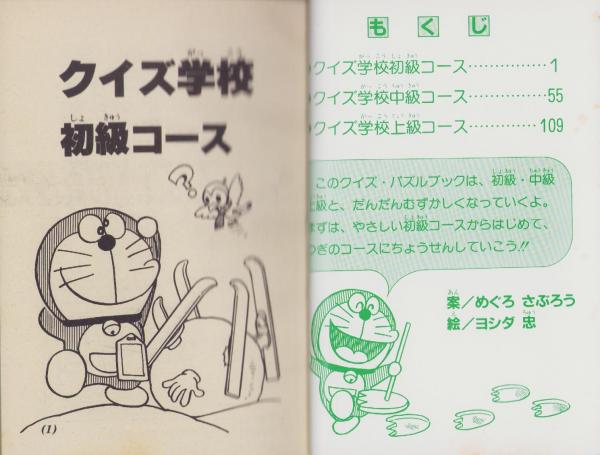 クイズ学校
初級コース
?
(1)
もくじ
クイズ学校初級コース……………1
クイズ学校中級コース…………55
クイズ学校上級コース…………109
このクイズ・パズルブックは、初級・中級
上級と、だんだんむずかしくなっていくよ。
まずは、やさしい初級コースからはじめて、
つぎのコースにちょうせんしていこう!!
案/めぐろ さぶろう
絵/ヨシダ 忠